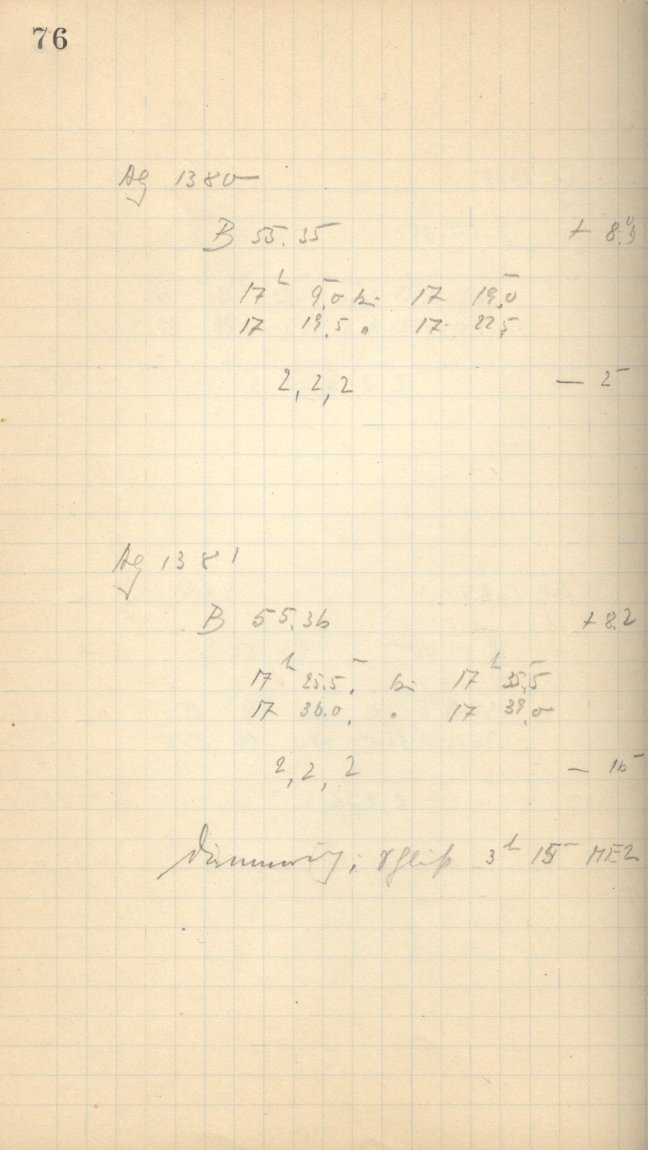 76
Ag 1380
B 55.35 + 8.9
17ʰ 9.0 bis 17 19.0
17 19.5 " 17 22.5
2, 2, 2 — 2
Ag 1381
B 55.36 + 8.2
17ʰ 25.5 bis 17ʰ 35.5
17 36.0 " 17 39.0
2, 2, 2 —
Dämmerung; Schluß 3ʰ 15ᵐ MEZ